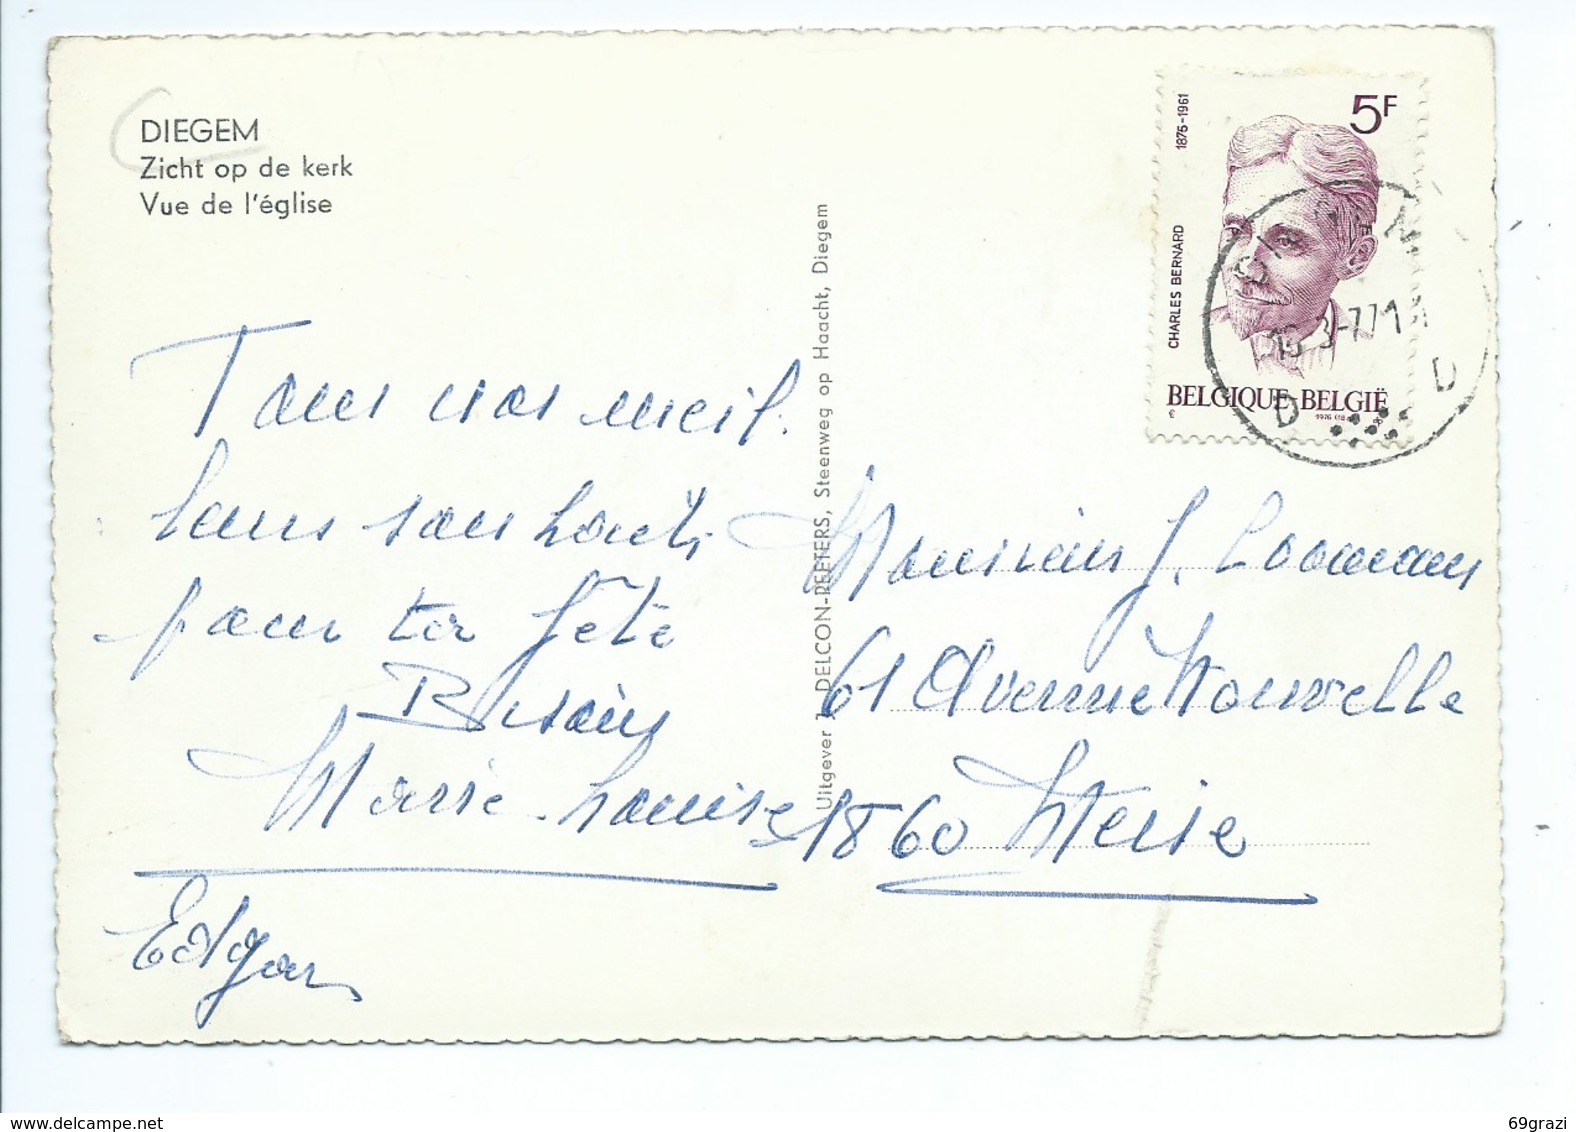 DIEGEM
Zicht op de kerk
Vue de l'église
Tous nos meil-
leurs souhaits
pour ta fête
Bisous
Marie-Louise
Edgar
Uitgever DELCON-PEETERS, Steenweg op Haacht, Diegem
5F
1875-1961
CHARLES BERNARD
BELGIQUE-BELGIË
1976
DIEGEM
3-77
D D
Monsieur J. Loomans
61 Avenue Nouvelle
1860 Meise
69grazi